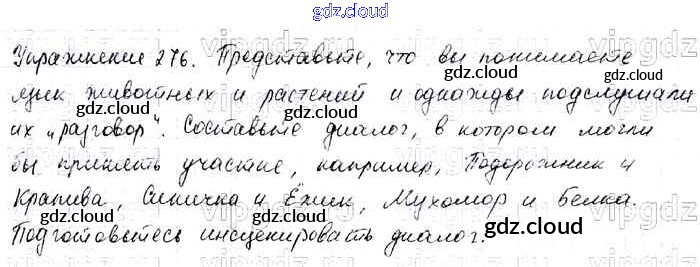 gdz.cloud
Упражнение 276. Представьте, что вы понимаете
язык животных и растений и однажды подслушали
их „разговор". Составьте диалог, в котором могли
бы принять участие, например, Подорожник и
Крапива, Синичка и Ёжик, Мухомор и Белка.
Подготовьтесь инсценировать диалог.